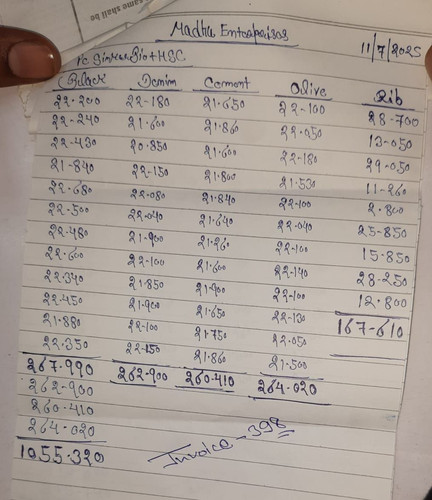 Madhu Enterprises
11/7/2025
Black Denim Cement Olive Rib
22-200 22-180 21.650 22-100 28-700
22-240 21.600 21.860 22.050 13-050
22-430 20.850 21.600 22-180 29-050
21-840 22-150 21.800 21.530 11-260
22.680 22.080 21.840 22-100 2.800
22.500 22.040 21.640 22.040 25-850
22.480 21.900 21.260 22-100 15.850
22.600 22-100 21.600 22-140 28-250
22.340 21.850 21.900 22-100 12.800
22.450 21.900 21.650 22-130 167-610
21.880 22-100 21.750 22.050
22.350 22-150 21.860 21.500
267.990 262-900 260-410 264-020
262-900
260-410
264-020
1055-320
Invoice - 398